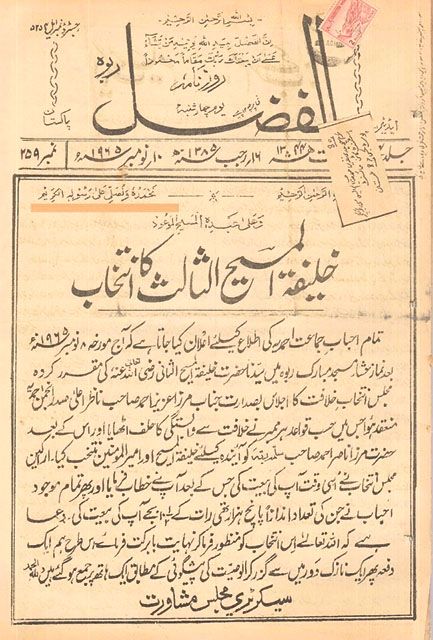 بسم اللہ الرحمن الرحیم
ان الفضل بید اللہ یؤتیہ من یشاء
عسیٰ ان یبعثک ربک مقاما محمودا
ربوہ
روزنامہ
الفضل
یوم چہارشنبہ
پاکستان
ایڈیٹر
جلد
۱۶ رجب ۱۳۸۵ھ
۱۰ نومبر ۱۹۶۵ء
نمبر ۲۵۹
الرحمن الرحیم
نحمدہ و نصلی علیٰ رسولہ الکریم
وعلیٰ عبدہ المسیح الموعود
خلیفۃ المسیح الثالث کا انتخاب
تمام احباب جماعت احمدیہ کی اطلاع کیلئے اعلان کیا جاتا ہے کہ آج مورخہ ۸ نومبر ۱۹۶۵ء
بعد نماز عشاء مسجد مبارک ربوہ میں سیدنا حضرت خلیفۃ المسیح الثانی رضی اللہ عنہ کی مقرر کردہ
مجلس انتخاب خلافت کا اجلاس بصدارت جناب مرزا عزیز احمد صاحب ناظر اعلیٰ صدر انجمن احمدیہ
منعقد ہوا جس میں حسب قواعد ہر ممبر نے خلافت سے وابستگی کا حلف اٹھایا اور اس کے بعد
حضرت مرزا ناصر احمد صاحب سلمہ ربہ کو آئندہ کیلئے خلیفۃ المسیح اور امیر المومنین منتخب کیا۔ اراکین
مجلس انتخاب نے اسی وقت آپ کی بیعت کی جس کے بعد آپ نے خطاب فرمایا اور پھر تمام موجود
احباب نے جن کی تعداد اندازاً پانچ ہزار تھی رات کے ساڑھے دس بجے آپ کی بیعت کی۔ دعا
ہے کہ اللہ تعالیٰ اس انتخاب کو منظور فرما کر نہایت بابرکت فرمائے۔ اس طرح ہم ایک
دفعہ پھر ایک نازک دور میں سے گزر کر الوصیت کی پیشگوئی کے مطابق ایک ہاتھ پر جمع ہو گئے ہیں
سیکرٹری مجلس مشاورت